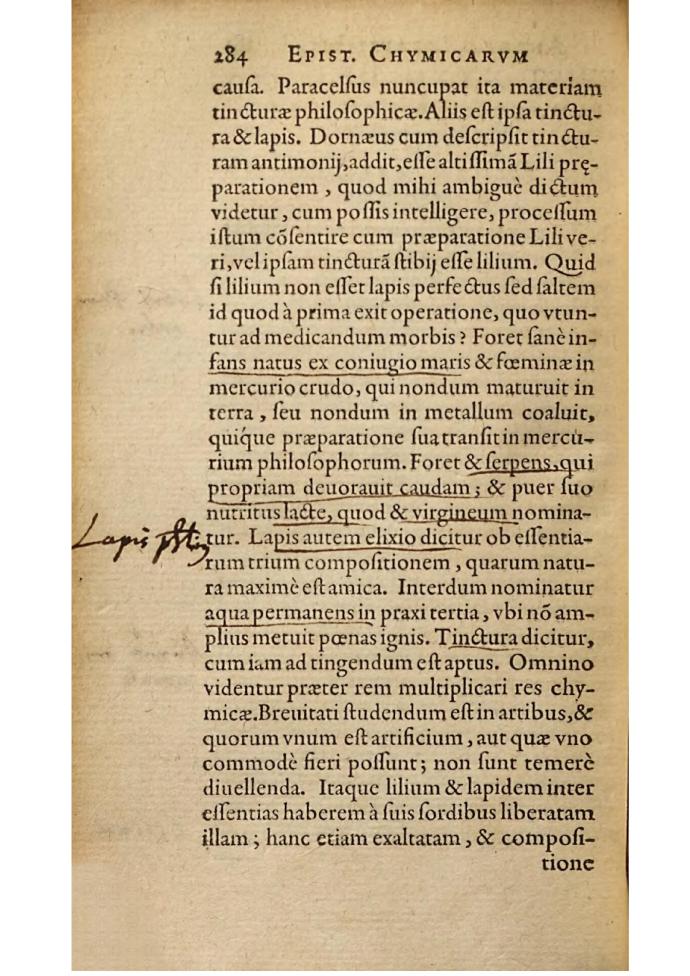 284 EPIST. CHYMICARVM
cauſa. Paracelſus nuncupat ita materiam
tincturæ philoſophicæ. Aliis eſt ipſa tinctu-
ra & lapis. Dornæus cum deſcripſit tinctu-
ram antimonij, addit, eſſe altiſſimā Lili prę-
parationem, quod mihi ambiguè dictum
videtur, cum poſſis intelligere, proceſſum
iſtum cōſentire cum præparatione Lili ve-
ri, vel ipſam tincturā ſtibij eſſe lilium. Quid
ſi lilium non eſſet lapis perfectus ſed ſaltem
id quod à prima exit operatione, quo vtun-
tur ad medicandum morbis? Foret ſanè in-
fans natus ex coniugio maris & fœminæ in
mercurio crudo, qui nondum maturuit in
terra, ſeu nondum in metallum coaluit,
quique præparatione ſua tranſit in mercu-
rium philoſophorum. Foret & ſerpens, qui
propriam deuorauit caudam; & puer ſuo
nutritus lacte, quod & virgineum nomina-
Lapis
tur. Lapis autem elixio dicitur ob eſſentia-
rum trium compoſitionem, quarum natu-
ra maximè eſt amica. Interdum nominatur
aqua permanens in praxi tertia, vbi nō am-
plius metuit pœnas ignis. Tinctura dicitur,
cum iam ad tingendum eſt aptus. Omnino
videntur præter rem multiplicari res chy-
micæ. Breuitati ſtudendum eſt in artibus, &
quorum vnum eſt artificium, aut quæ vno
commodè fieri poſſunt; non ſunt temerè
diuellenda. Itaque lilium & lapidem inter
eſſentias haberem à ſuis ſordibus liberatam
illam; hanc etiam exaltatam, & compoſi-
tione